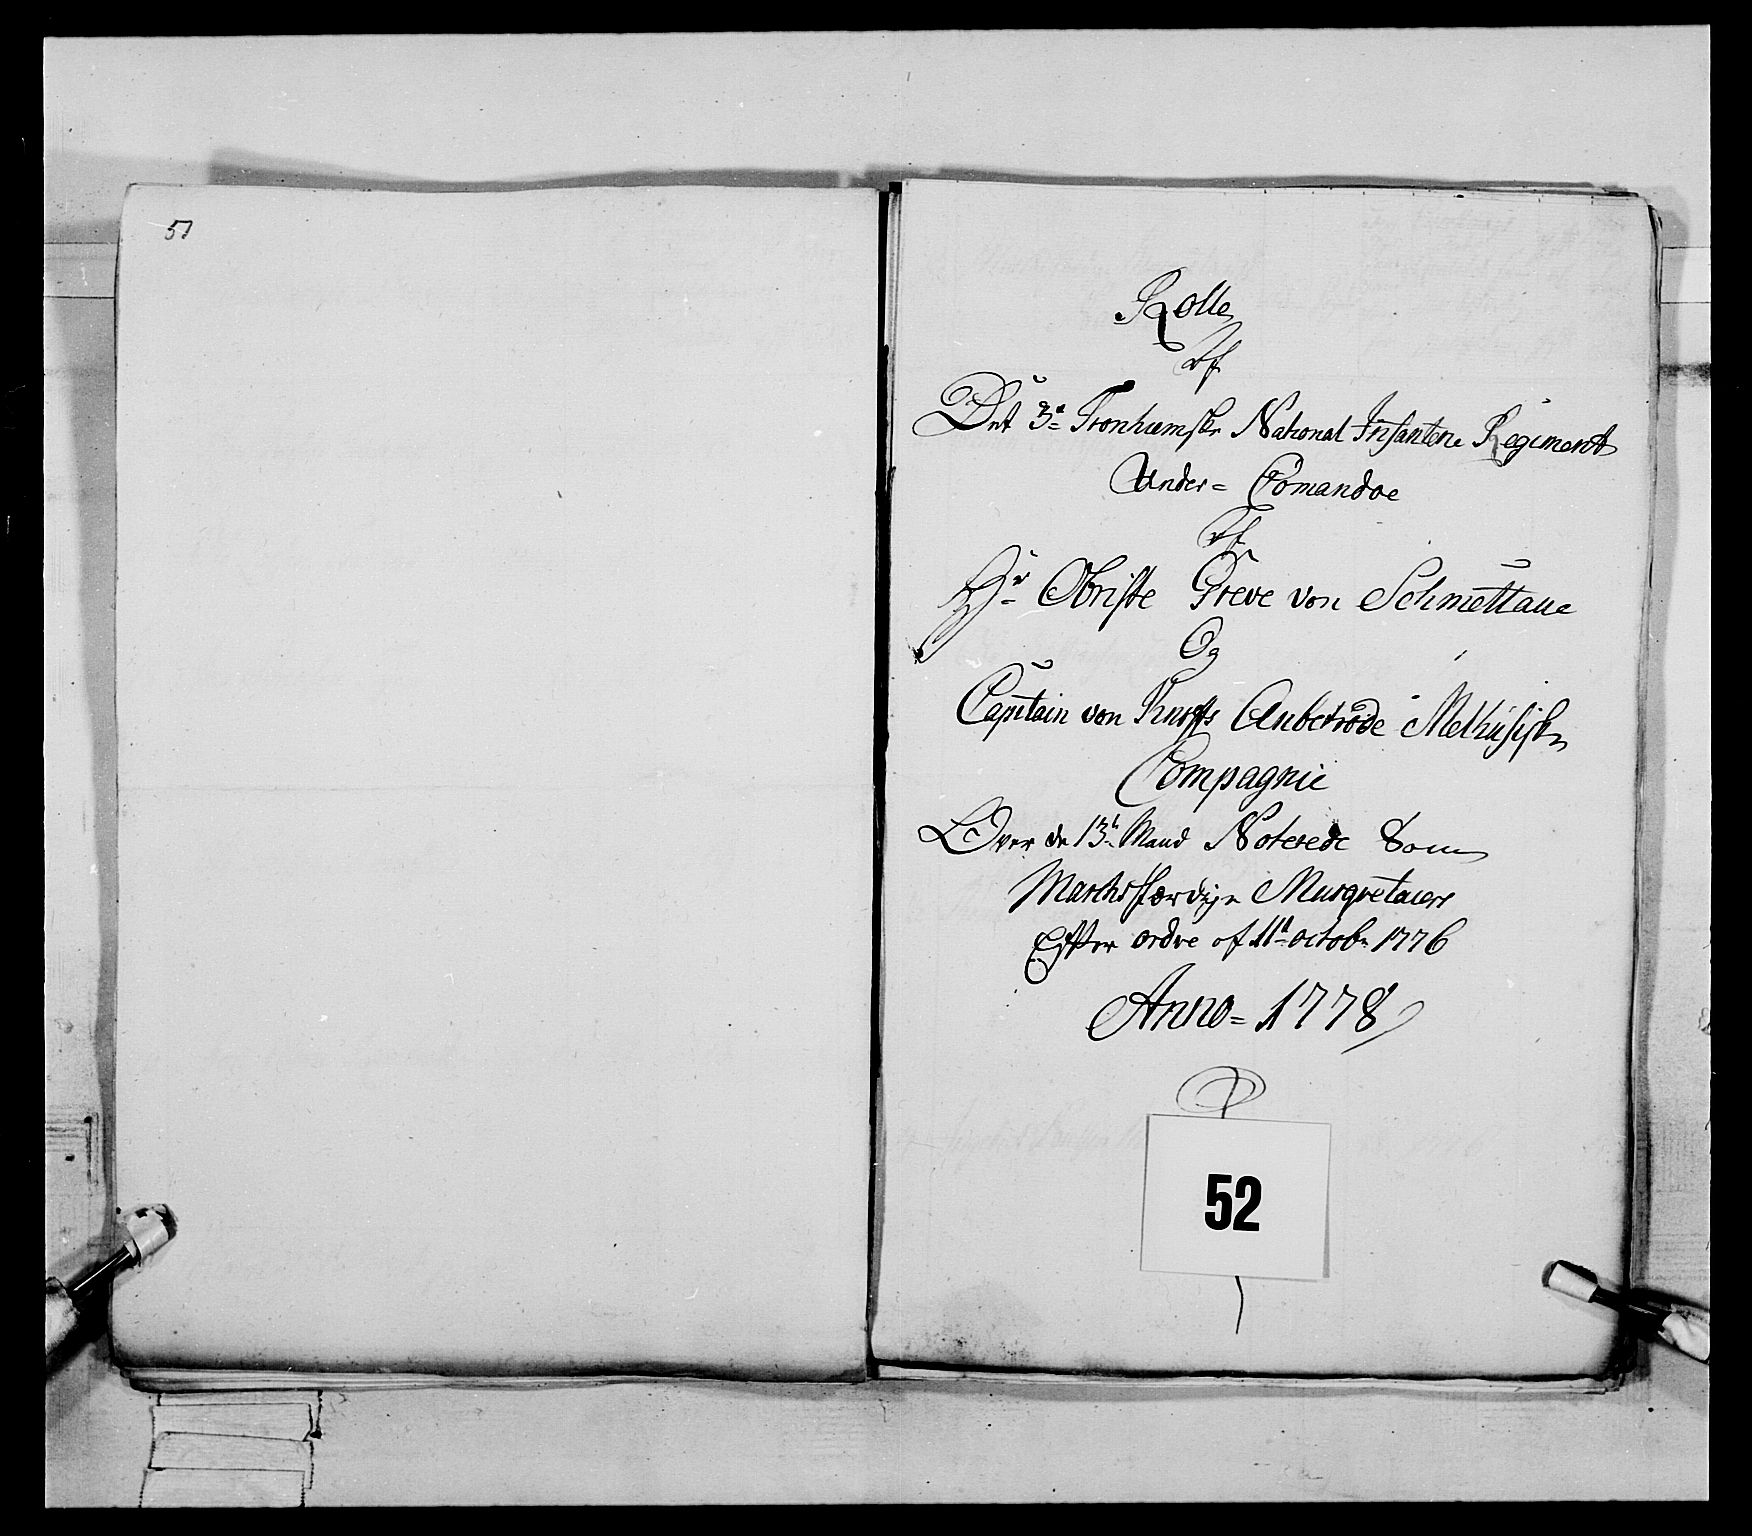 51
Rolle
Af
Det 3e Tronhiemske National Infanterie Regiment
Under= Comandoe
Af
Hr Obriste Greve von Schmettaue
Og
Capitain von Knoffs Anbetrode Melhusiske
Compagnie
Over de Mand Noterede Som
Marchsfærdige Musqvetaiers
Efter ordre af 11t octobr 1776
Anno= 1778
52